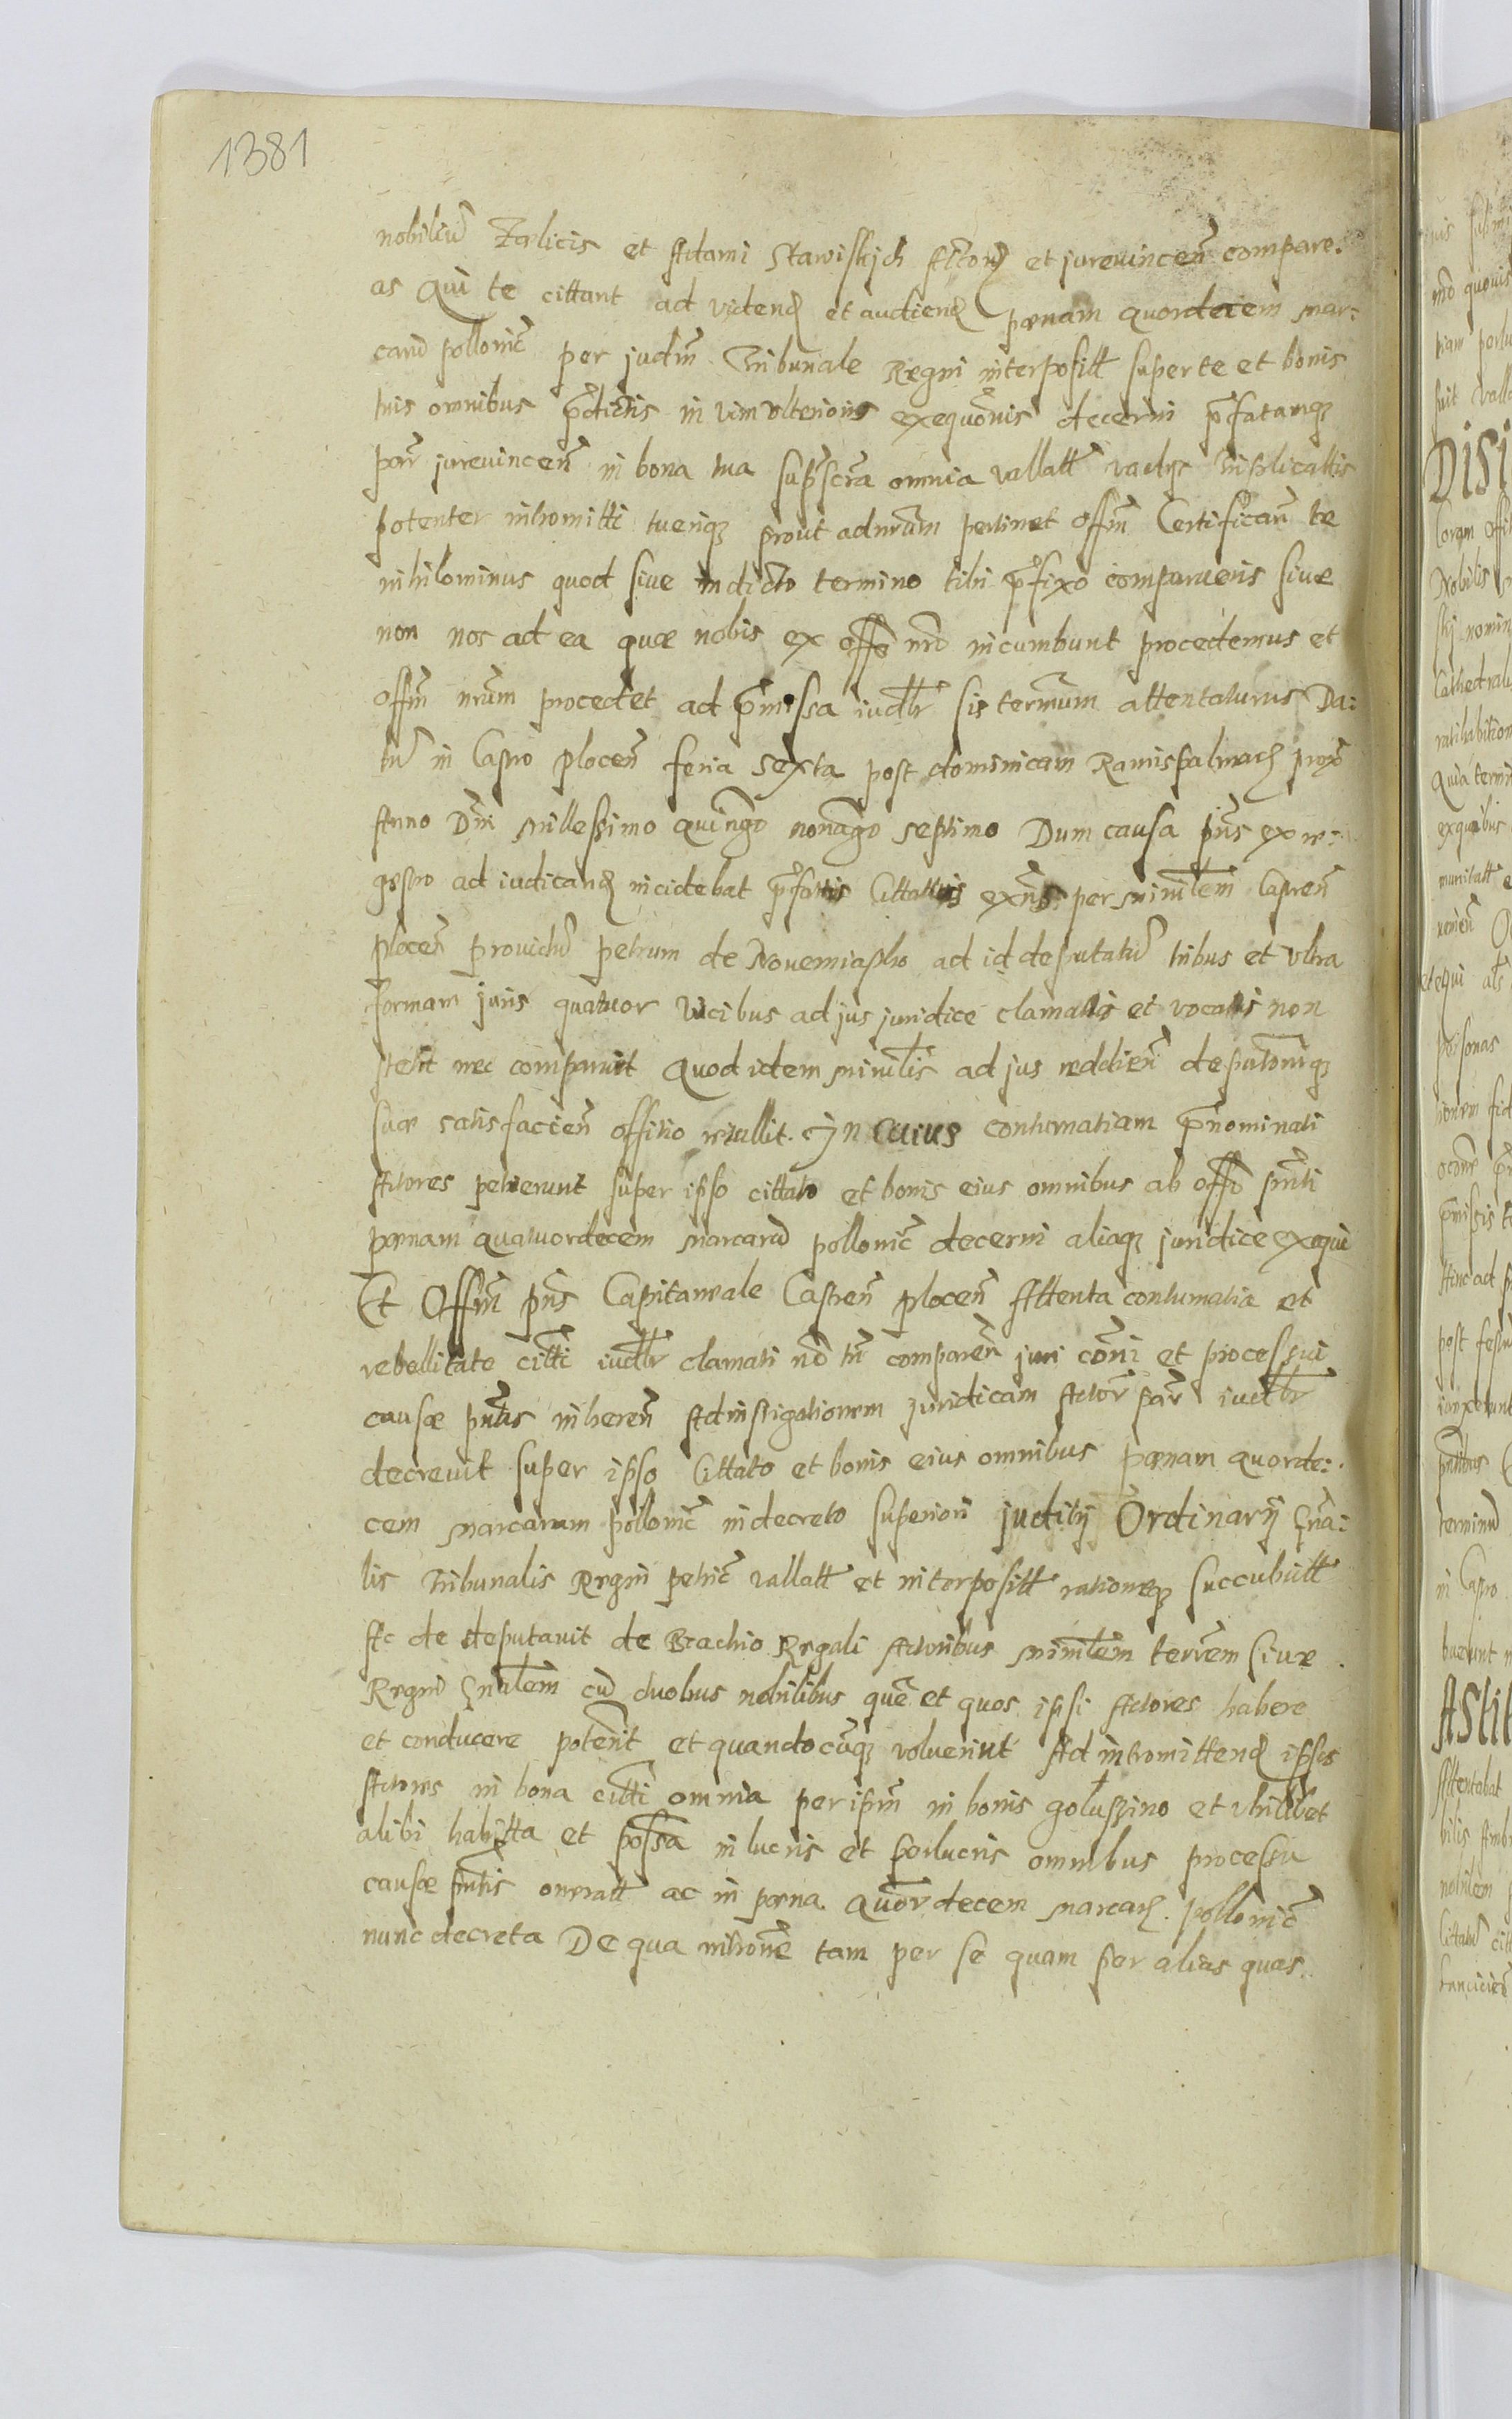 1381
nobiliū Fœlicis et Adami Stawiskich Actorū et jurevincen̄ compare:
as Qui te cittant ad videnđ et audienđ pœnam quordecem mar:
carū pollonic̄ per judm̄ Tribunale Regni interpositt super te et bonis
tuis omnibus p̄dictis in vim ulterioris exequōnis decerni p̄fatamq;
par̄ jurevincen̄ in bona tua sup̄scr̄a omnia vallatt vadijs Triplicattis
potenter intromitti tueriq; prout ad nr̄um pertinet offm̄ Certifican̄ te
nihilominus quod sive in dicto termino tibi p̄fixo comparueris sive
non nos ad ea quæ nobis ex offō nr̄o incumbunt procedemus et
offm̄ nr̄um procedet ad p̄missa iudlr̄ sis termn̄um attentaturus Da:
tū in Castro plocen̄ feria sexta post dominicam Ramispalmarꝫ prox̄
Anno Dn̄i Millessimo quingō nonagō septimo Dum causa pn̄s ex re:
gestro ad iudicanđ incidebat p̄fatus Cittattus exn̄s per minrl̄em Castren̄
plocen̄ providū petrum de Novemiastho ad id deputatū tribus et ultra
formam juris quatuor vicibus ad jus juridice clamatus et vocatus non
stetit nec comparuit Quod idem minrl̄is ad jus reddien̄ deputoniq;
suæ satisfacien̄ offitio retullit. In cuius contumatiam p̄nominati
Actores petierunt super ipso cittato et bonis eius omnibus ab offō pn̄ti
pœnam quatuordecem marcarū pollonic̄ decerni aliaq; juridice exequi
Et Offm̄ pn̄s Capitaneale Castren̄ plocen̄ Attenta contumatia et
rebellitate citti iudlr̄ clamati nō tn̄ comparen̄ juri cōni et processui
causæ pn̄tis inheren̄ Ad instigationem juridicam Actor̄ par̄ iudlr̄
decrevit super ipso Cittato et bonis eius omnibus pœnam quorde:
cem marcarum pollonic̄ in decreto superiori juditij Ordinarij Gn̄a:
lis Tribunalis Regni petric̄ vallatt et interpositt rationeq; succubuitt
Ac de deputavit de Brachio Regali Actoribus minrl̄em terrem̄ sive
Regnī Gn̄alem cū duobus nobilibus quē et quos ipsi Actores habere
et conducere poterīnt et quandocūq; voluerint Ad intromittenđ ipsos
Actores in bona citti omnia per ipm̄ in bonis goluszino et vbilibet
alibi habitta et possa in lucris et perlucris omnibus processu
causæ pn̄tis oneratt ac in pœna quordecem marcarꝫ pollonic̄
nunc decreta De qua intronē tam per se quam per alias quas